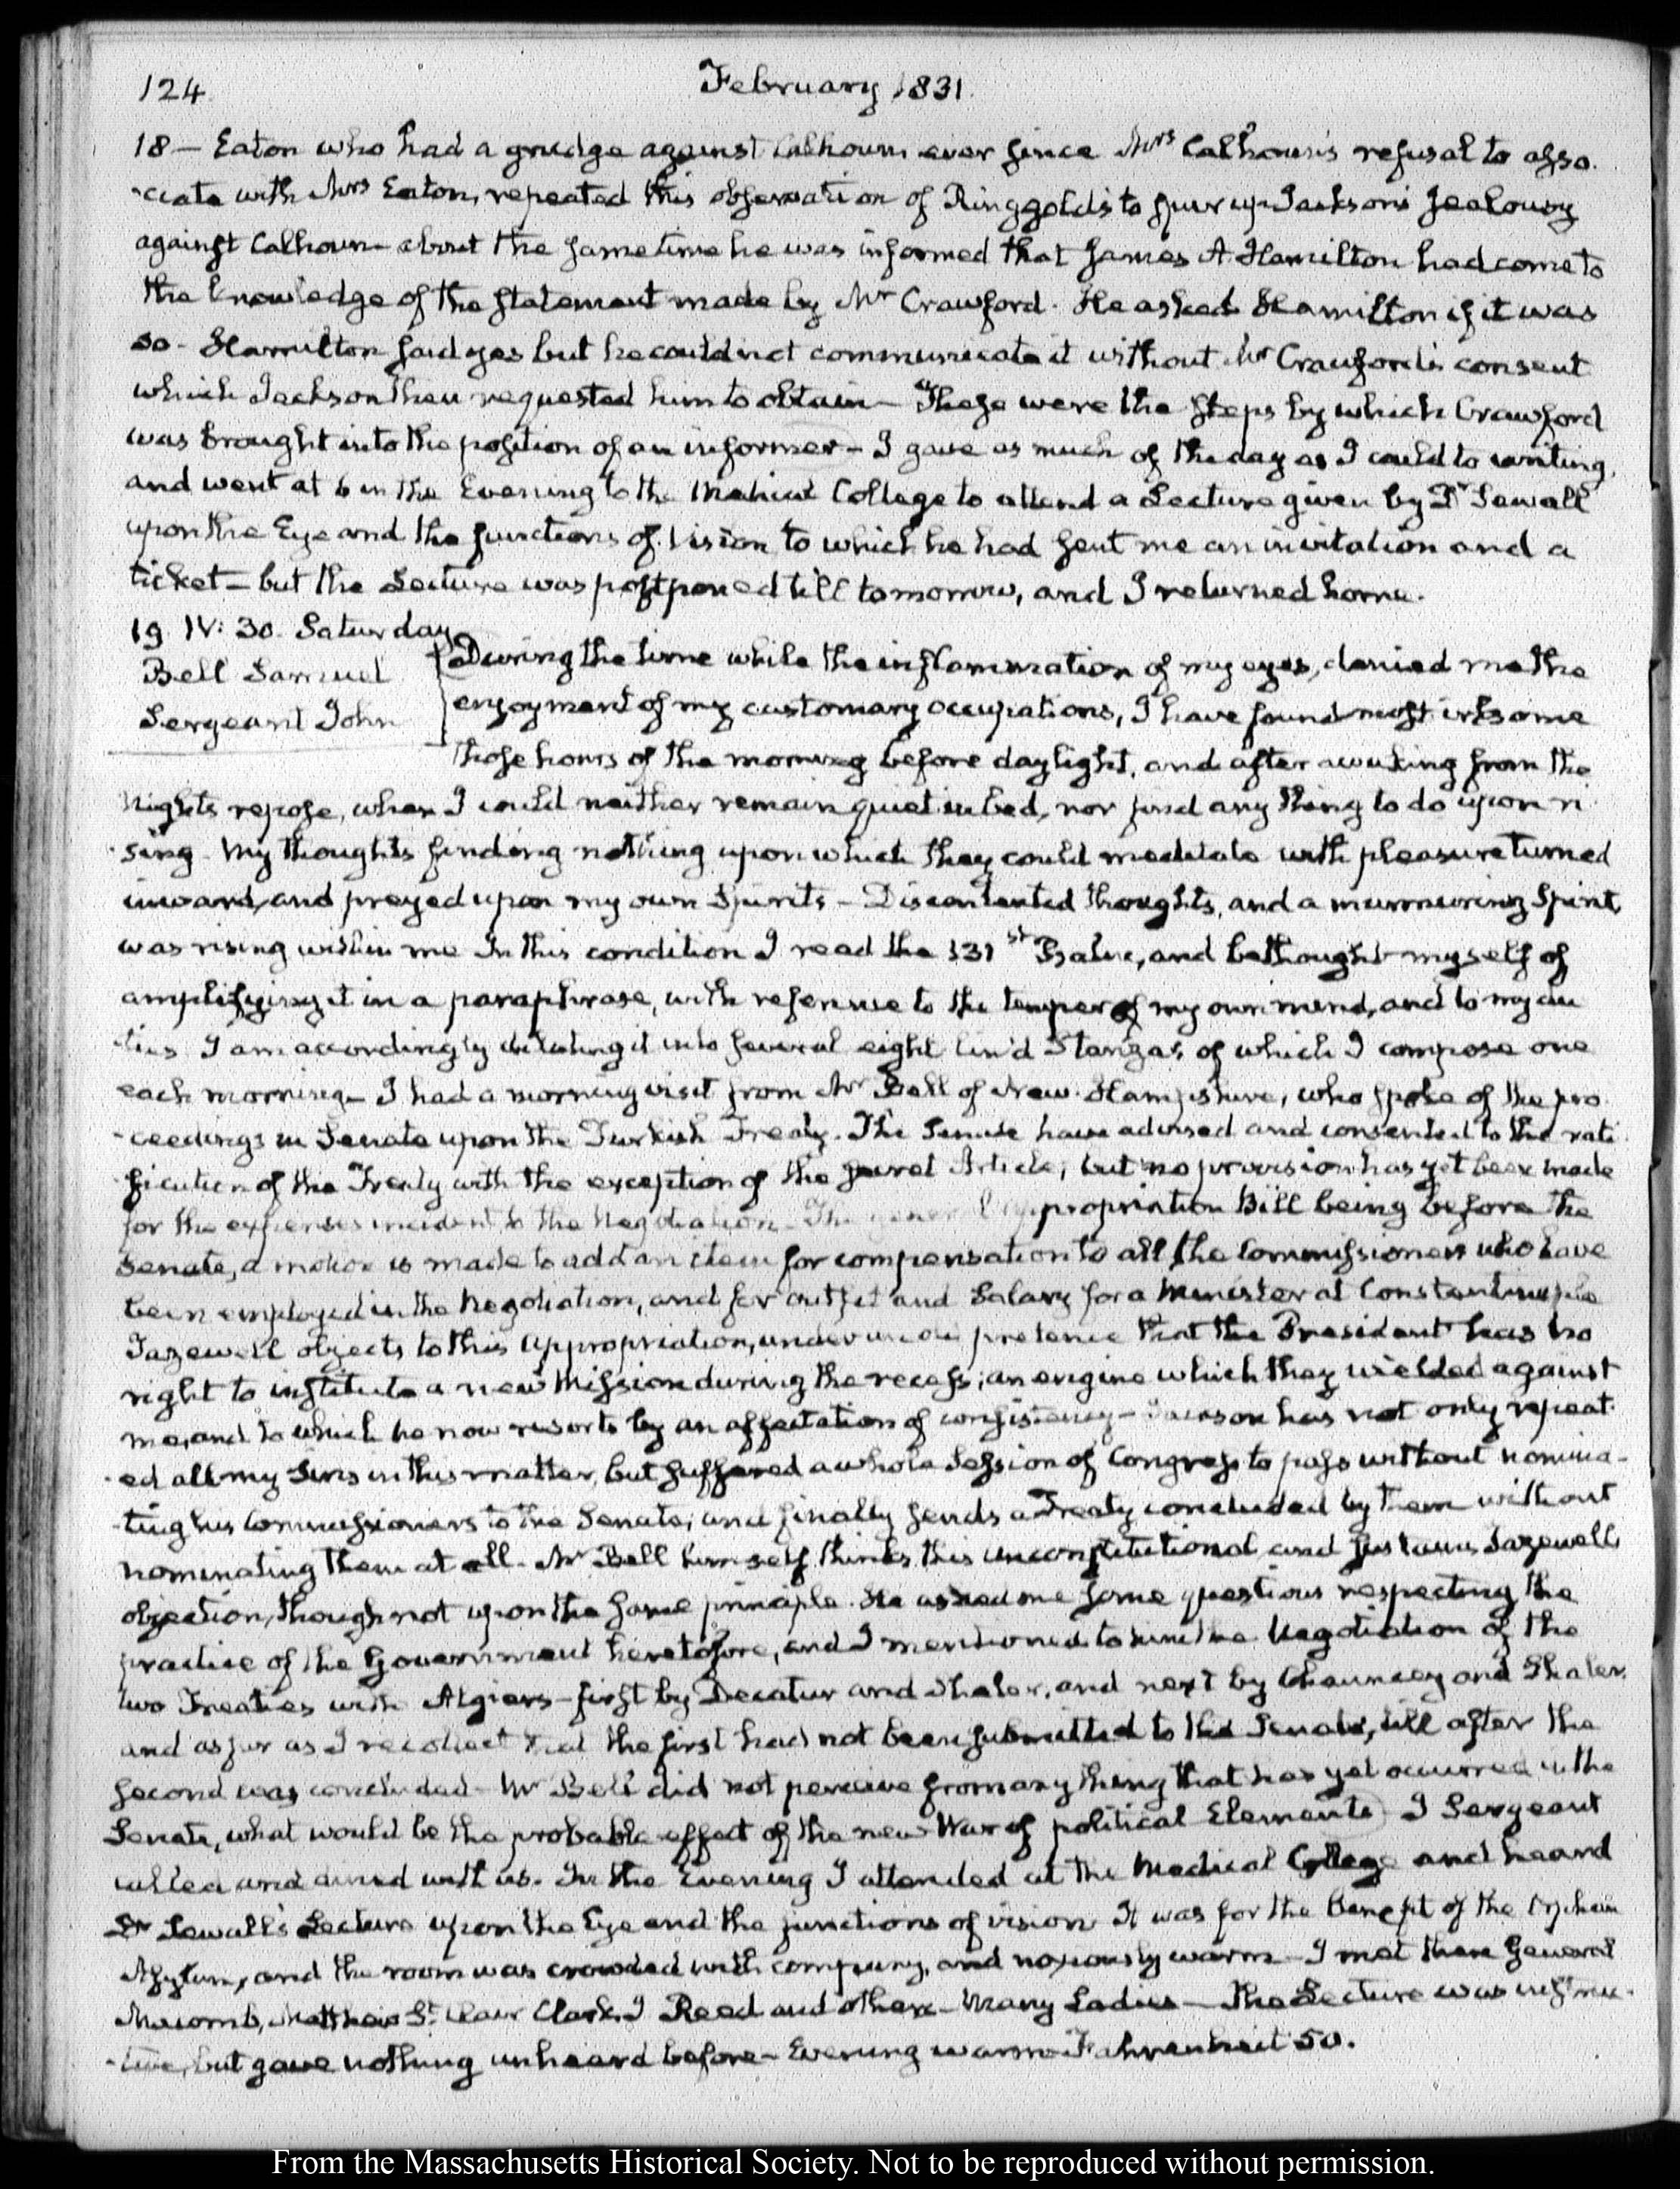 124.
February 1831.
18 — Eaton who had a grudge against Calhoun ever since Mrs Calhoun's refusal to asso-
-ciate with Mrs Eaton, repeated this observation of Ringgold's to spur up Jackson's jealousy
against Calhoun— about the same time he was informed that James A. Hamilton had come to
the knowledge of the statement made by Mr Crawford. He asked Hamilton if it was
so - Hamilton said yes but he could not communicate it without Mr Crawford's consent
which Jackson then requested him to obtain — These were the steps by which Crawford
was brought into the position of an informer - I gave as much of the day as I could to writing,
and went at 6 in the Evening to the Medical College to attend a Lecture given by Dr Sewall
upon the Eye and the functions of Vision to which he had sent me an invitation and a
ticket — but the Lecture was postponed till tomorrow, and I returned home.
19. IV: 30. Saturday.
Bell Samuel
Sergeant John
During the time while the inflammation of my eyes, denied me the
enjoyment of my customary occupations, I have found most irksome
those hours of the morning before daylight, and after awaking from the
Nights repose, when I could neither remain quiet in bed, nor find any thing to do upon ri-
-sing - My thoughts finding nothing upon which they could meditate with pleasure turned
inward, and preyed upon my own Spirits — Discontented thoughts, and a murmuring Spirit,
was rising within me In this condition I read the 131st Psalm, and bethought myself of
amplifying it in a paraphrase, with reference to the temper of my own mind, and to my du-
-ties I am accordingly dilating it into several eight lin'd Stanzas, of which I compose one
each morning — I had a morning visit from Mr Bell of New-Hampshire, who spoke of the pro-
-ceedings in Senate upon the Turkish Treaty. The Senate have advised and consented to the rati-
-fication of the Treaty with the exception of the secret Article; but no provision has yet been made
for the expenses incident to the Negotiation - The general appropriation Bill being before the
Senate, a motion is made to add an item for compensation to all the Commissioners who have
been employed in the Negotiation, and for outfit and Salary for a Minister at Constantinople
Tazewell objects to this appropriation, under pretence that the President has no
right to institute a new Mission during the recess; an engine which they wielded against
me, and to which he now resorts by an affectation of consistency — Jackson has not only repeat-
-ed all my Sins in this matter, but suffered a whole Session of Congress to pass without nomina-
-ting his Commissioners to the Senate; and finally sends a Treaty concluded by them without
nominating them at all - Mr Bell himself thinks this unconstitutional and sustains Tazewell's
objection, though not upon the same principle. He asked me some questions respecting the
practice of the Government heretofore, and I mentioned to him the Negotiation of the
two Treaties with Algiers — first by Decatur and Shaler, and next by Chauncey and Shaler.
and as far as I recollect that the first had not been submitted to the Senate, till after the
second was concluded - Mr Bell did not perceive from any thing that has yet occurred in the
Senate, what would be the probable effect of the new War of political Elements J Sergeant
called and dined with us. In the Evening I attended at the Medical College and heard
Dr Sewall's Lecture upon the Eye and the functions of vision It was for the benefit of the Orphan
Asylum, and the room was crowded with company, and noxiously warm — I met there General
Macomb, Matthew St. Clair Clarke, J Reed and others — Many Ladies — The Lecture was instruc-
-tive, but gave nothing unheard before — Evening warm Fahrenheit 50.
From the Massachusetts Historical Society. Not to be reproduced without permission.